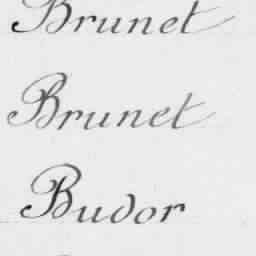 Brunet
Brunet
Budor